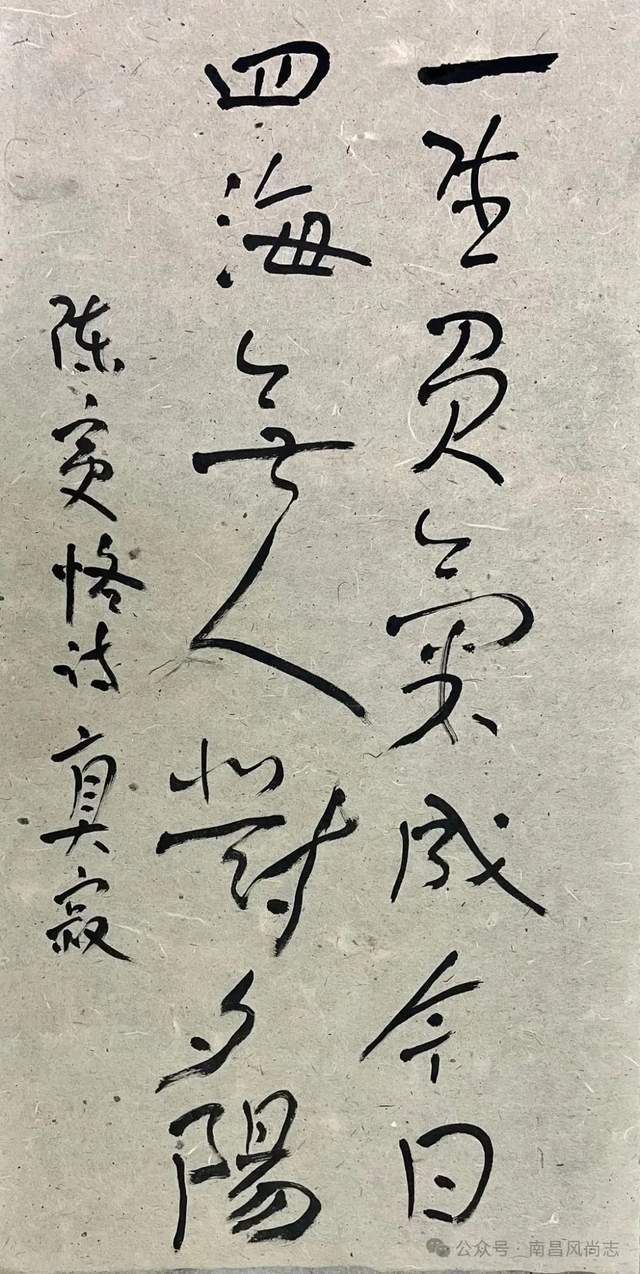 一生負氣成今日
四海無人對夕陽
陈寅恪诗 真寂
公众号·南昌风尚志